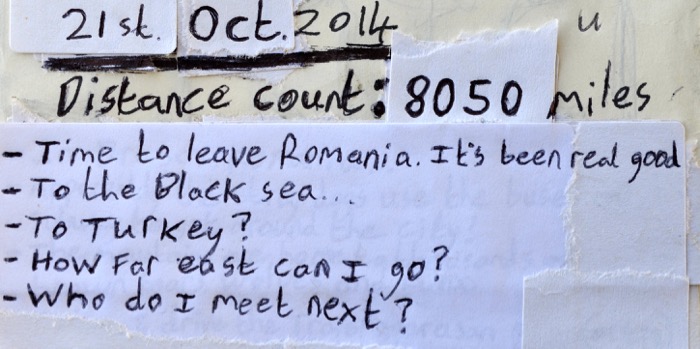 21st. Oct. 2014 u
Distance count: 8050 miles
- Time to leave Romania. It's been real good
- To the Black sea...
- To Turkey?
- How Far east can I go?
- Who do I meet next?